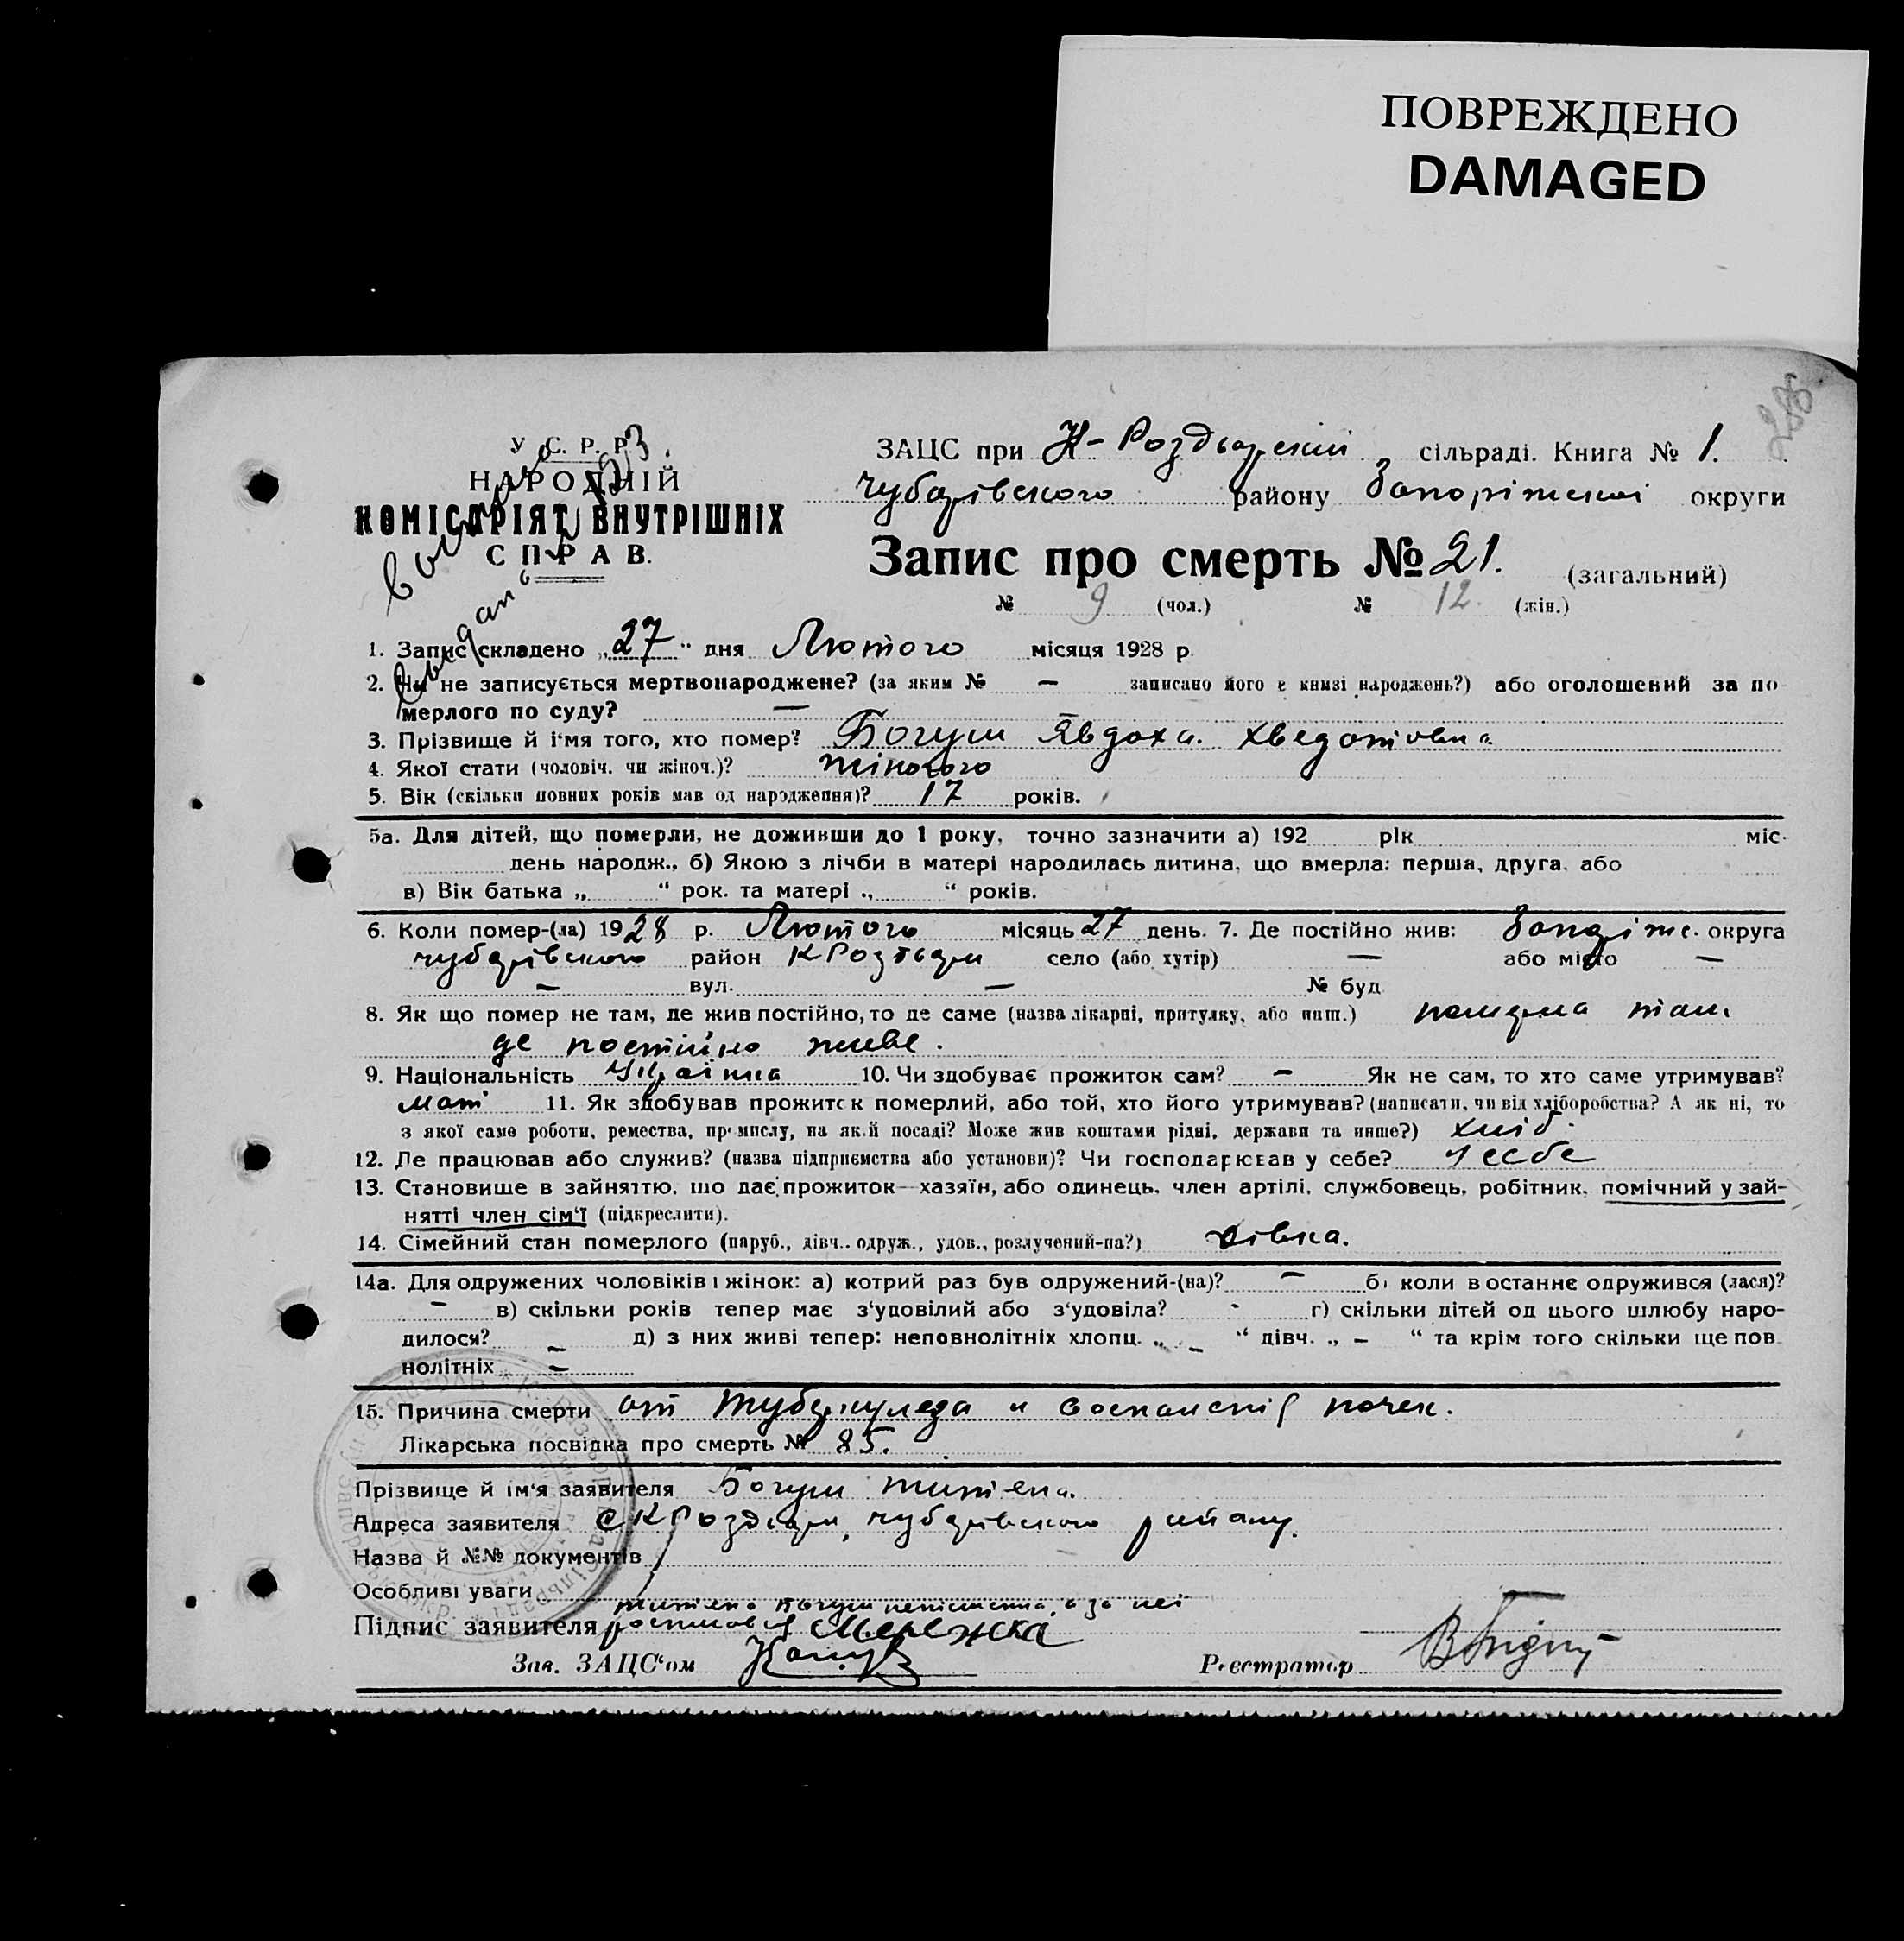 ПОВРЕЖДЕНО
DAMAGED
У. С. Р. Р.
НАРОДНІЙ
КОМІСАРІЯТ ВНУТРІШНІХ
СПРАВ.
ЗАЦС при К-Роздорській сільраді. Книга № 1.
Чубарівського району Запоріжської округи
Запис про смерть № 21. (загальний)
№ 9 (чол.) № 12. (жін.)
1. Запис складено „27" дня Лютого місяця 1928 р.
2. Чи не записується мертвонароджене? (за яким № — записано його в книзі народжень?) або оголошений за по-
мерлого по суду? —
3. Прізвище й і'мя того, хто помер? Богуш Явдоха Хведотовна
4. Якої стати (чоловіч. чи жіноч.)? жіночого
5. Вік (скільки повних років мав од народження)? 17 років.
5а. Для дітей, що померли, не доживши до 1 року, точно зазначити а) 192 рік міс.
день народж., б) Якою з лічби в матері народилась дитина, що вмерла: перша, друга, або
в) Вік батька „ " рок. та матері „ " років.
6. Коли помер-(ла) 1928 р. Лютого місяць 27 день. 7. Де постійно жив: Запоріж. округа
Чубарівського район К Роздори село (або хутір) — або місто —
— вул. — № буд.
8. Як що помер не там, де жив постійно, то де саме (назва лікарні, притулку, або инш.) померла там
де постійно живе.
9. Національність Українка 10. Чи здобуває прожиток сам? — Як не сам, то хто саме утримував?
Мати 11. Як здобував прожиток померлий, або той, хто його утримував? (написати, чи від хліборобства? А як ні, то
з якої саме роботи, ремества, промислу, на якій посаді? Може жив коштами рідні, держави та инше?) хліб.
12. Де працював або служив? (назва підприємства або установи)? Чи господарював у себе? у себе
13. Становище в зайняттю, що дає прожиток—хазяїн, або одинець, член артілі, службовець, робітник, помічний у зай-
нятті член сім'ї (підкреслити).
14. Сімейний стан померлого (паруб., дівч., одруж., удов., розлучений-на?) дівка.
14а. Для одружених чоловіків і жінок: а) котрий раз був одружений-(на)? — б) коли в останнє одружився (лася)?
— в) скільки років тепер має з'удовілий або з'удовіла? - г) скільки дітей од цього шлюбу наро-
дилося? — д) з них живі тепер: неповнолітніх хлопц. „ — " дівч. „ — " та крім того скільки ще пов-
нолітніх —
15. Причина смерти от туберкулеза и воспаления почек.
Лікарська посвідка про смерть № 85.
Прізвище й ім'я заявителя Богуш
Адреса заявителя с К Роздори, Чубарівського району.
Назва й №№ документів
Особливі уваги
Богуш неписьменна, а за неї
Підпис заявителя росписався Мережка
Зав. ЗАЦС'ом
Реєстратор